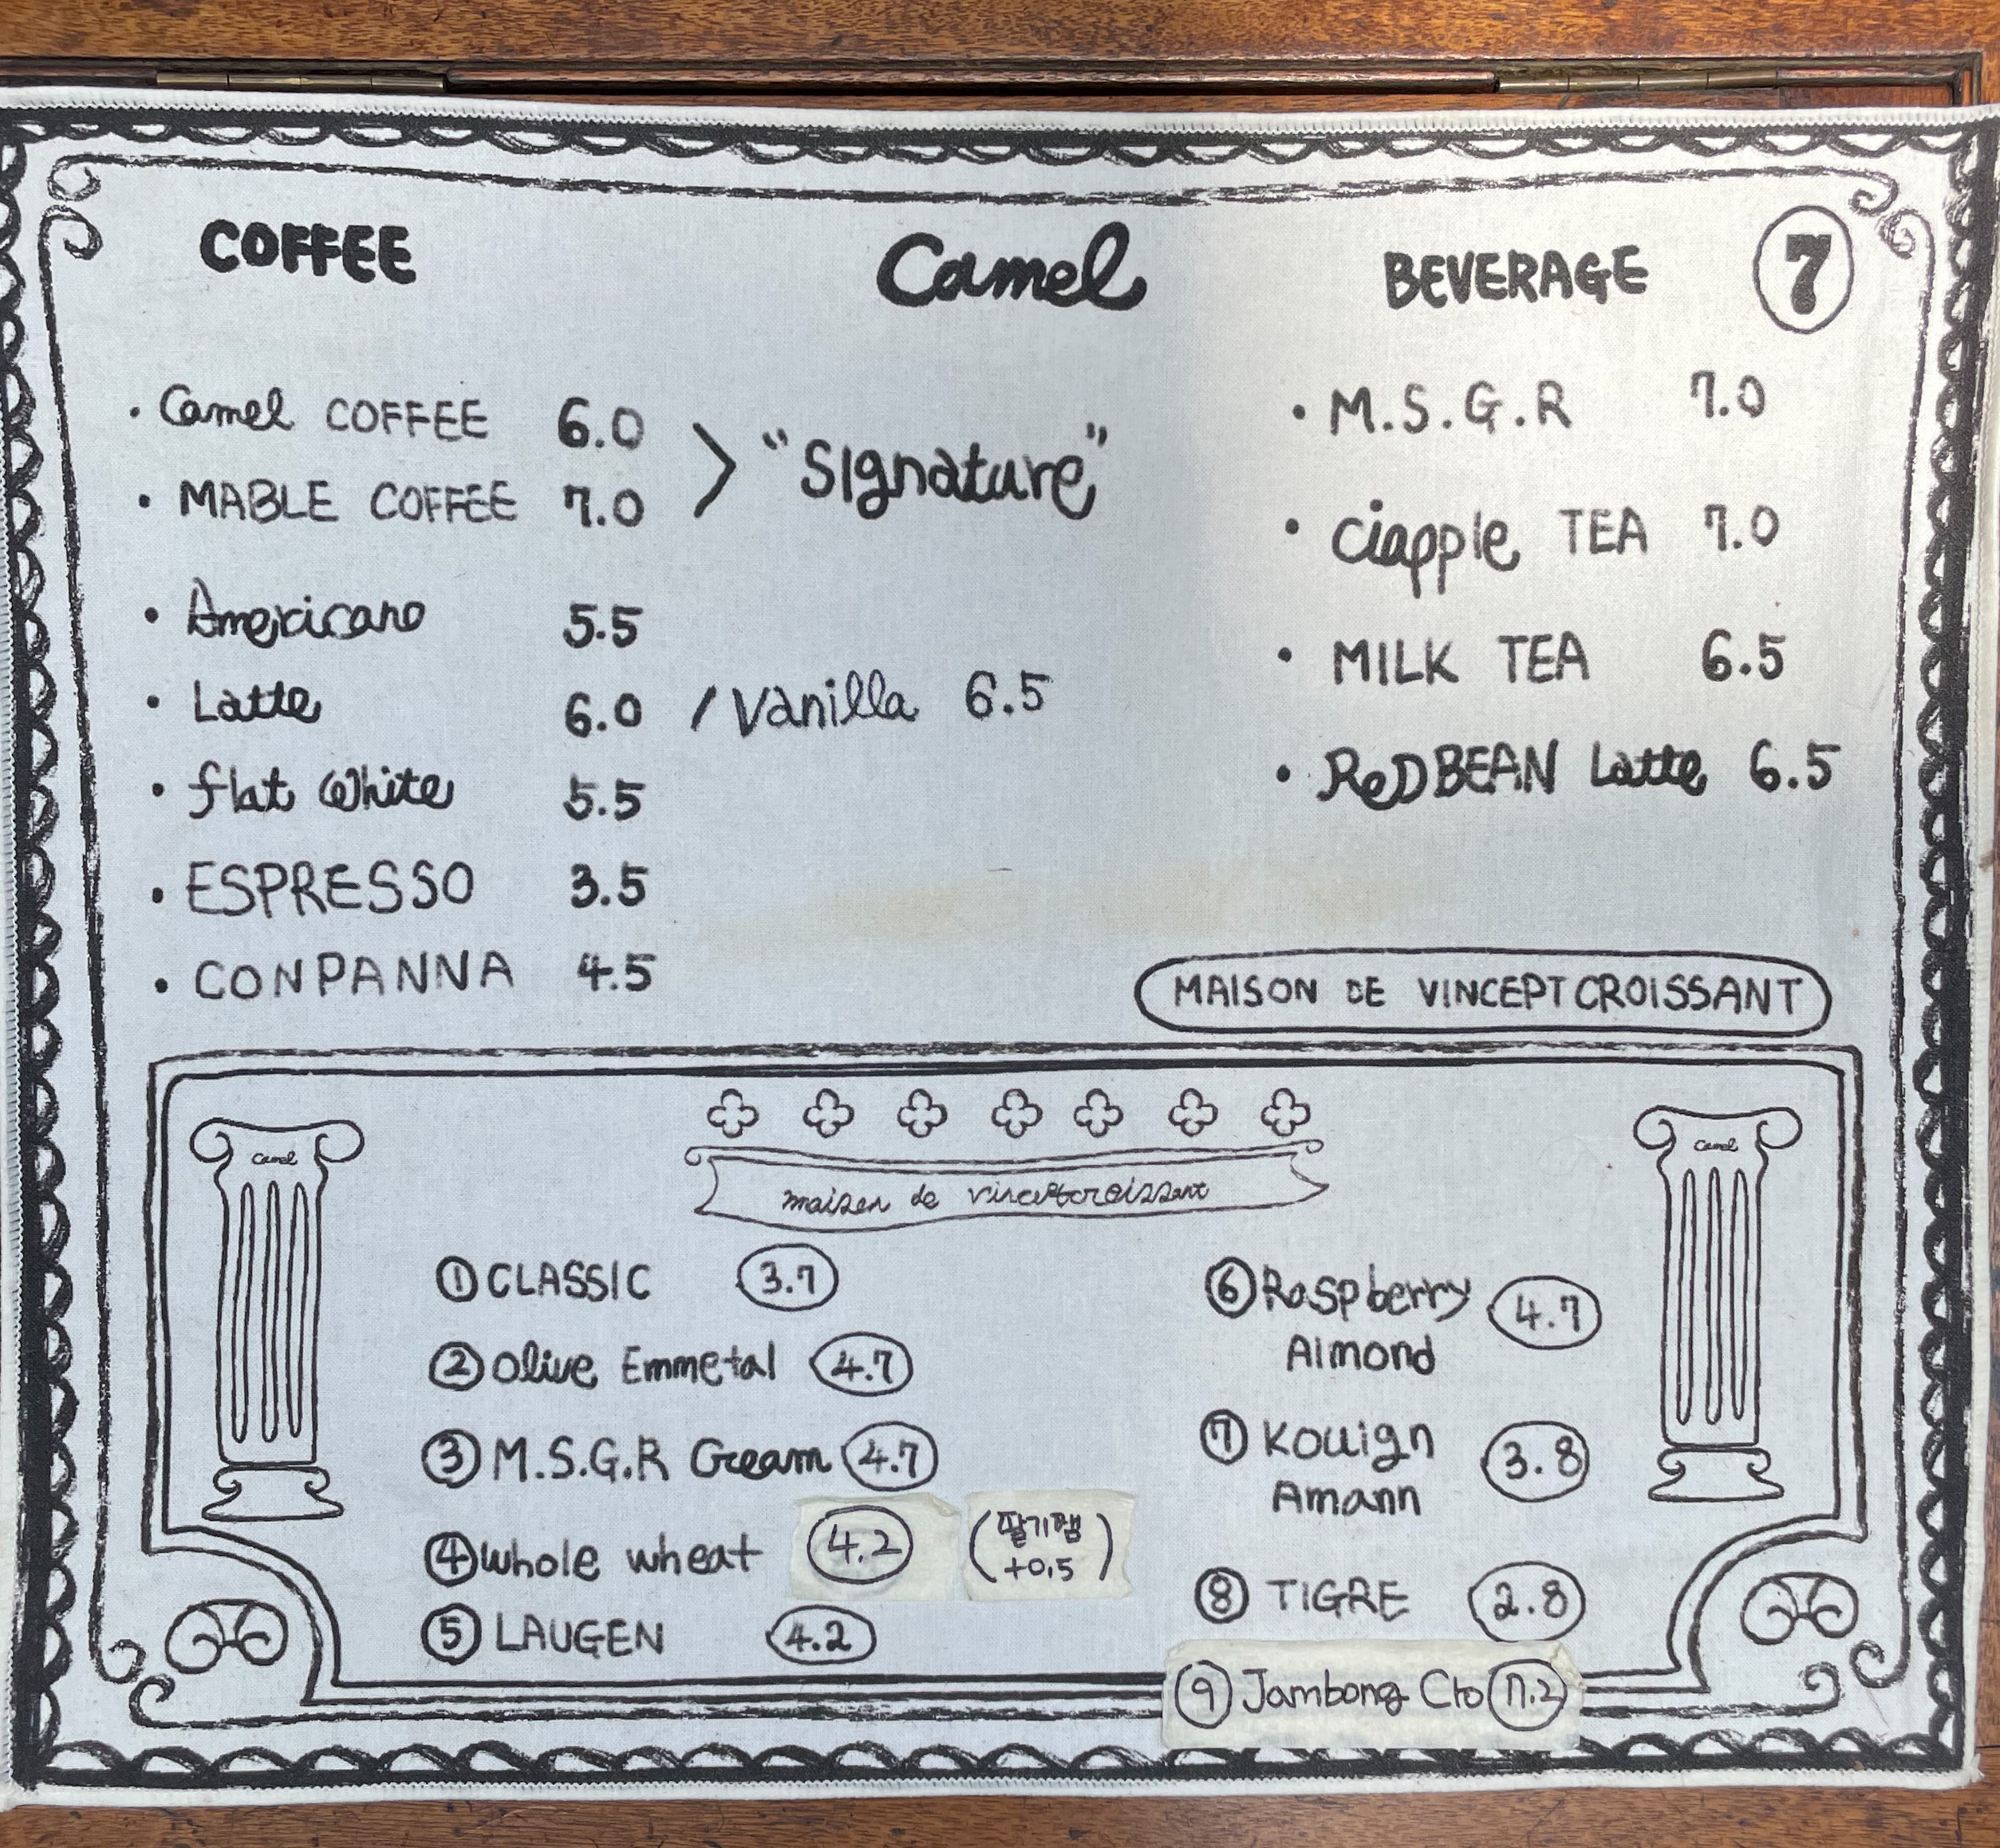 COFFEE
Camel
BEVERAGE 7
• Camel COFFEE 6.0
• MABLE COFFEE 7.0
> "Signature"
• Americano 5.5
• Latte 6.0 / Vanilla 6.5
• flat White 5.5
• ESPRESSO 3.5
• CONPANNA 4.5
• M.S.G.R 7.0
• ciapple TEA 7.0
• MILK TEA 6.5
• ReDBEAN Latte 6.5
MAISON DE VINCEPTCROISSANT
Camel
Camel
maison de vinceptcroissant
① CLASSIC 3.7
② Olive Emmetal 4.7
③ M.S.G.R Cream 4.7
④ whole wheat 4.2 (딸기잼
+0.5)
⑤ LAUGEN 4.2
⑥ Raspberry 4.7
Almond
⑦ Kouign 3.8
Amann
⑧ TIGRE 2.8
⑨ Jambong Cro 7.2